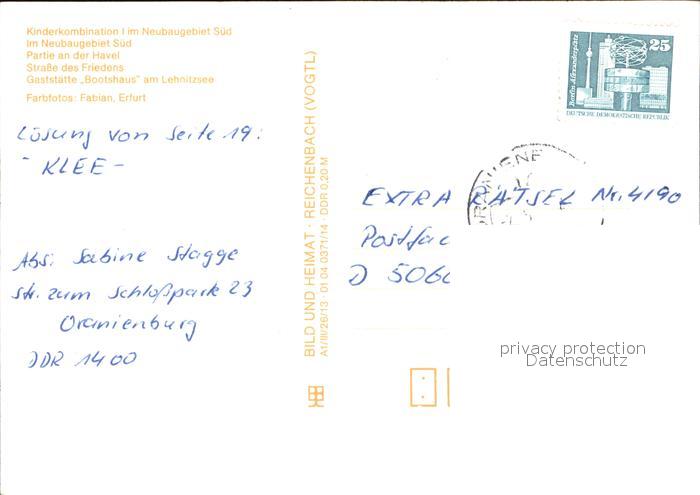 Kinderkombination I im Neubaugebiet Süd
Im Neubaugebiet Süd
Partie an der Havel
Straße des Friedens
Gaststätte „Bootshaus" am Lehnitzsee
Farbfotos: Fabian, Erfurt
Lösung von Seite 19:
- KLEE -
Abs: Sabine Stagge
Str. zum Schloßpark 23
Oranienburg
DDR 1400
BILD UND HEIMAT · REICHENBACH (VOGTL)
A1/III/26/13 · 01 04 0371/14 · DDR 0,20 M
25
Berlin, Alexanderplatz
DEUTSCHE DEMOKRATISCHE REPUBLIK
EXTRA RÄTSEL Nr. 4190
Postfac
D 506
privacy protection
Datenschutz